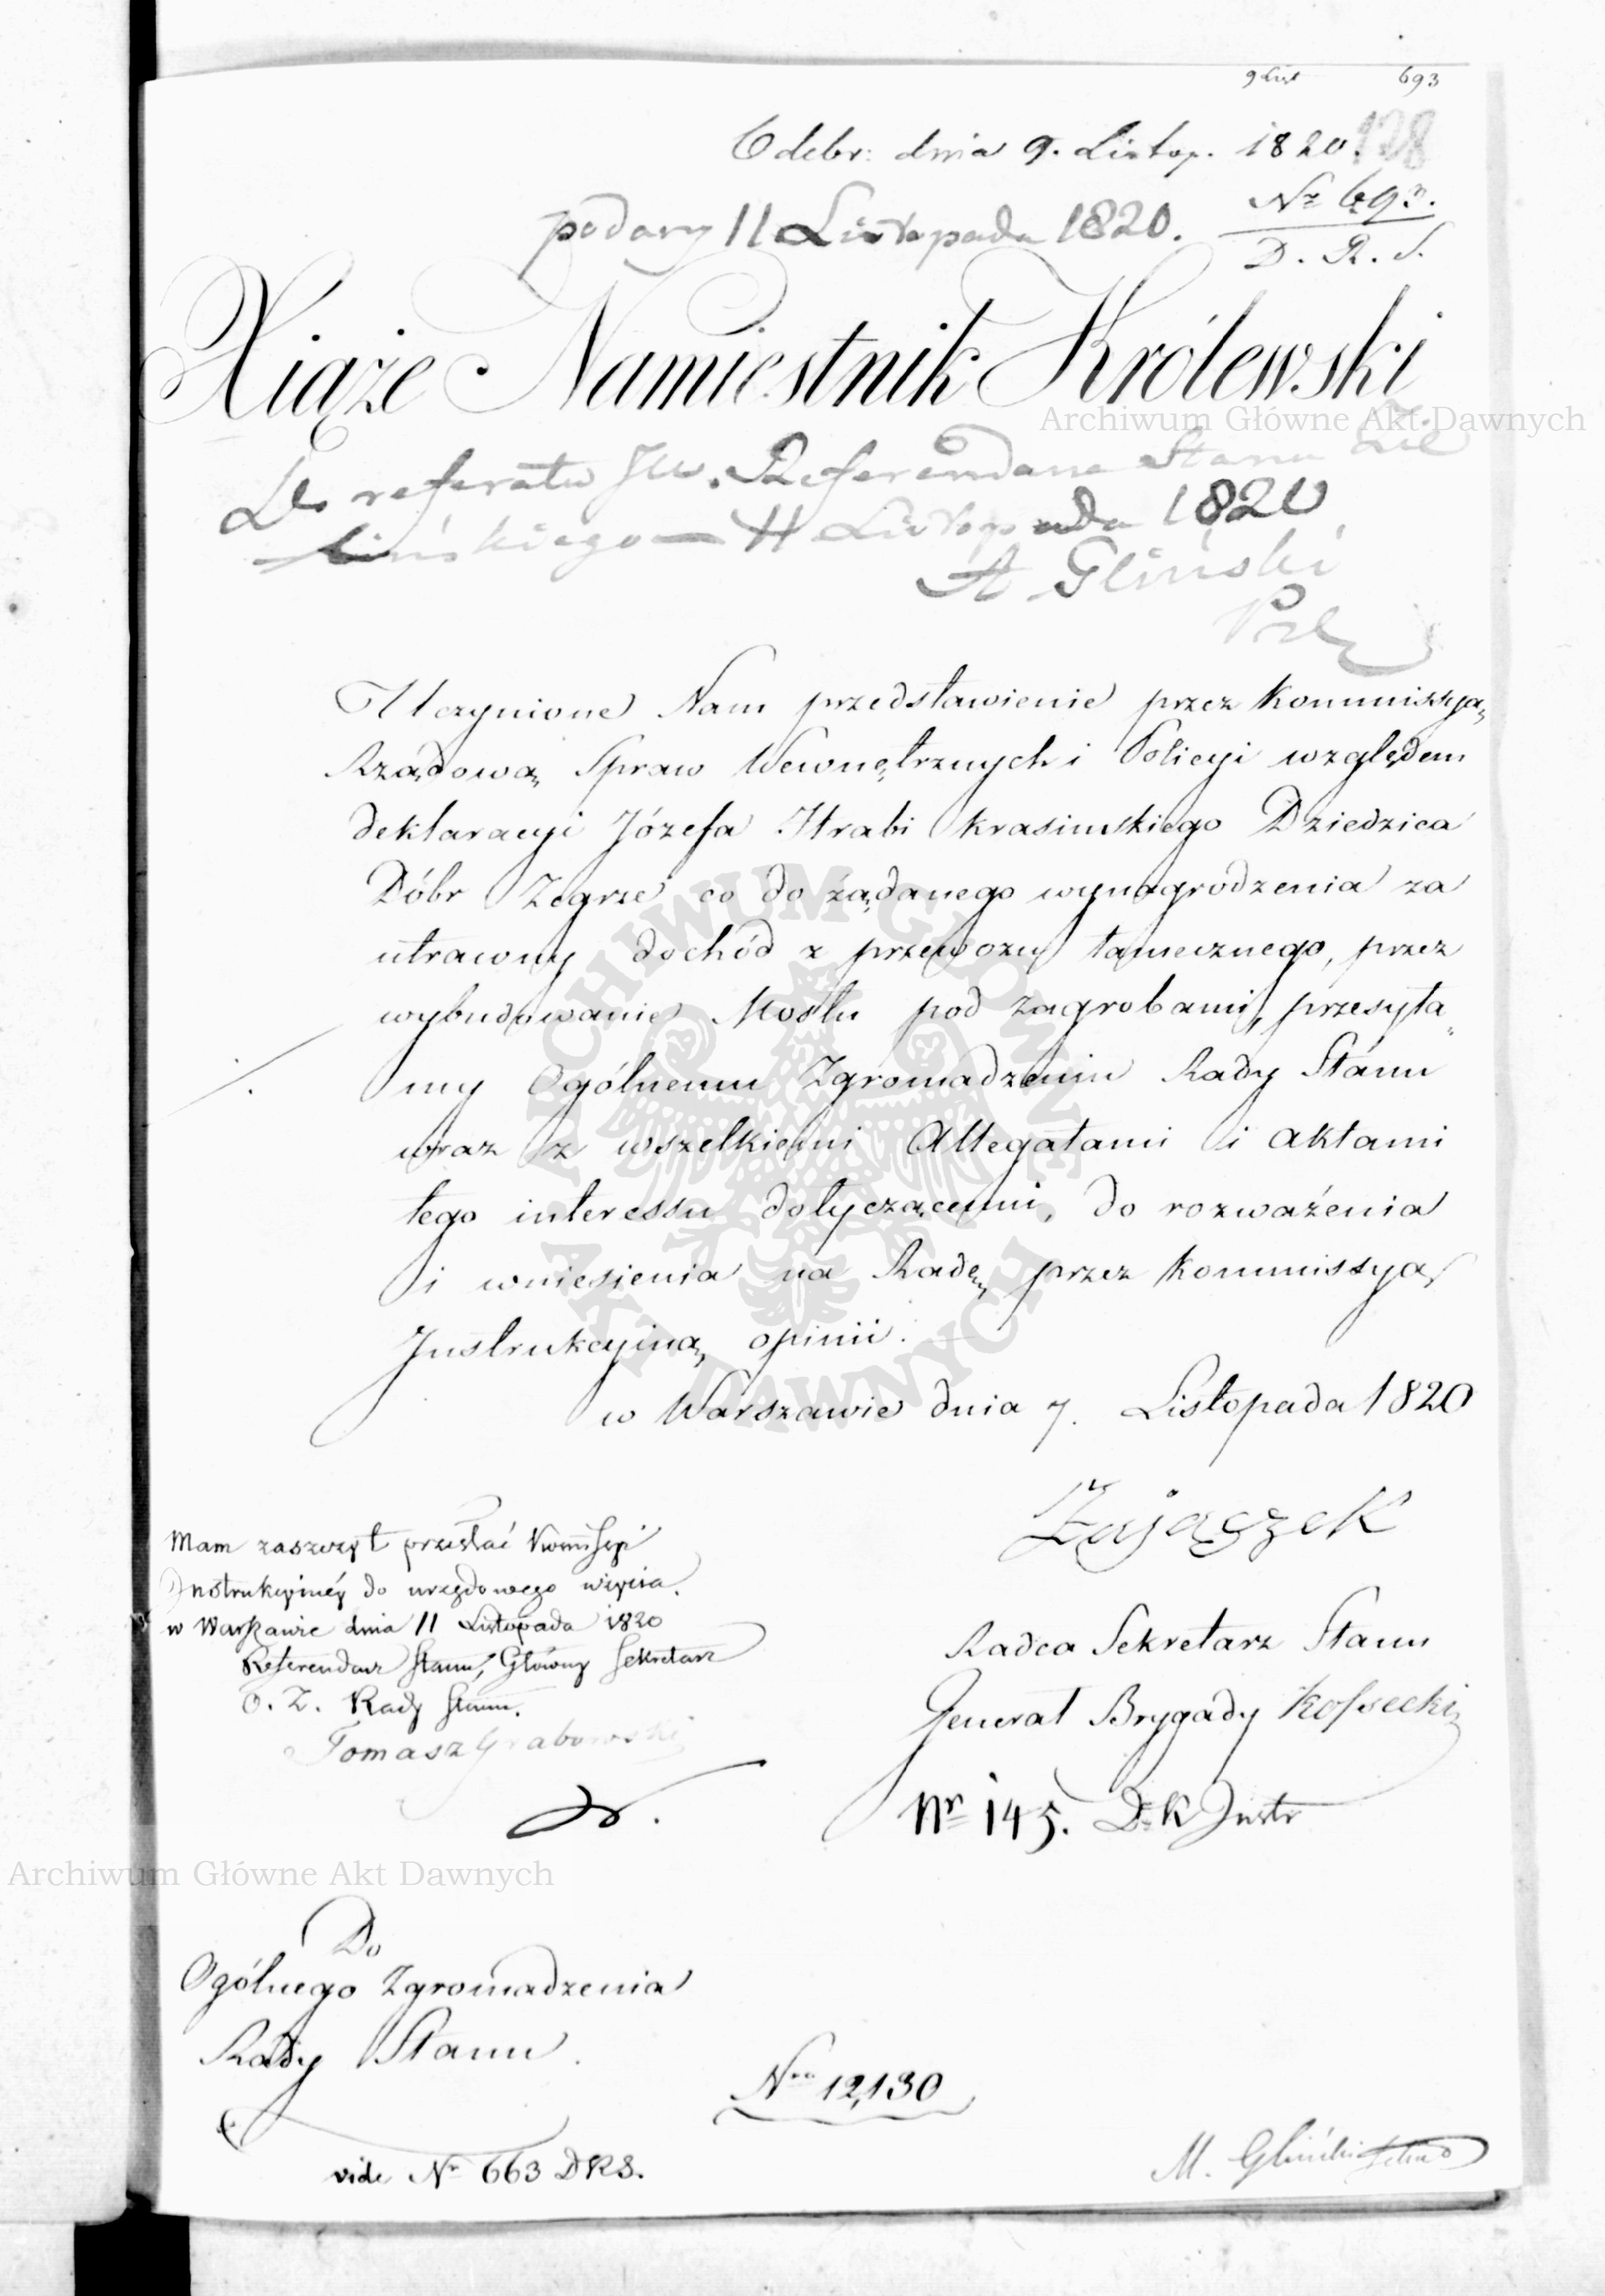 9 List 693
Odebr: dnia 9. Listop. 1820. 128
podany 11 Listopada 1820. Nr 693.
D. R. S.
Xiąże Namiestnik Królewski
Archiwum Główne Akt Dawnych
Do referatu JW. Referendarza Stanu Zie
lińskiego — 11 Listopada 1820
A Gliński
Uczynione Nam przedstawienie przez Kommissyą
Rządową Spraw Wewnętrznych i Policyi względem
deklaracyi Józefa Hrabi Krasinskiego Dziedzica
Dóbr Zegrze co do żądanego wynagrodzenia za
utracony dochód z przewozu tamecznego, przez
wybudowanie Mostu pod Zagrobami, przesyła„
my Ogólnemu Zgromadzeniu Rady Stanu
wraz z wszelkiemi Allegatami i aktami
tego interessu dotyczącemi, do rozważenia
i wniesienia na Radę, przez Kommissyą
Instrukcyiną opinii.
w Warszawie dnia 7. Listopada 1820
Zajączek
Mam zaszczyt przesłać Kommissyi
Instrukcyinéy do urzędowego użycia.
w Warszawie dnia 11 Listopada 1820
Referendarz Stanu, Główny Sekretarz
O. Z. Rady Stanu.
Tomasz Grabowski
Radca Sekretarz Stanu
Generał Brygady Kossecki
Nr 145. D. K Instr
Archiwum Główne Akt Dawnych
Do
Ogólnego Zgromadzenia
Rady Stanu.
Nro 12,130
vide Nr 663 DRS.
M. Gliński
ARCHIWUM GŁÓWNE AKT DAWNYCH